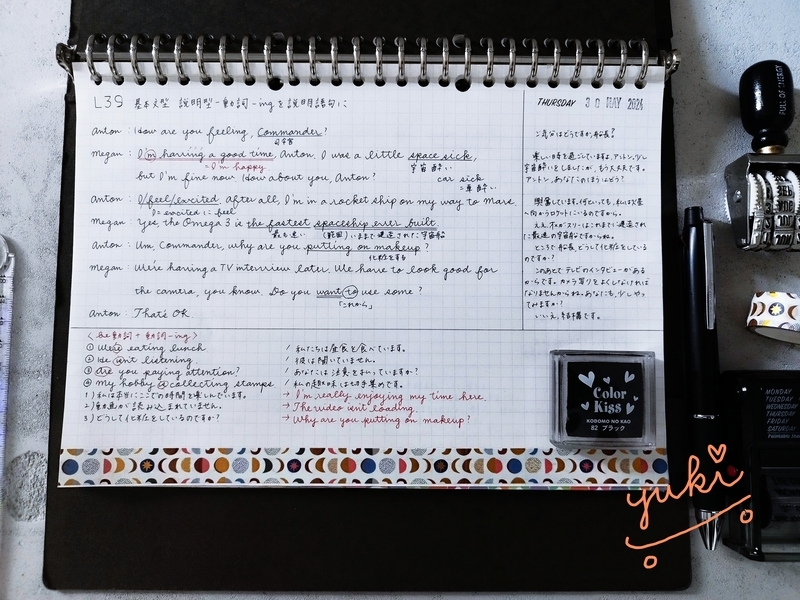 L39 基本文型 説明型-動詞-ingを説明語句に
THURSDAY 30 MAY 2024
Anton: How are you feeling, Commander?
司令官
Megan: I'm having a good time, Anton. I was a little space sick,
= I'm happy
宇宙酔い
but I'm fine now. How about you, Anton?
car sick
= 車酔い
Anton: I feel excited. After all, I'm in a rocket ship on my way to Mars.
Megan: Yes, the Omega 3 is the fastest spaceship ever built.
最も速い (範囲)いままで建造された宇宙船
Anton: Um, Commander, why are you putting on makeup?
化粧をする
Megan: We're having a TV interview later. We have to look good for
the camera, you know. Do you want to use some?
「これから」
Anton: That's OK.
ご気分はどうですか、船長?
楽しい時を過ごしていますよ、アントン。少し
宇宙酔いをしましたが、もう大丈夫です。
アントン、あなたのほうはどう?
興奮しています。何といっても、私は火星
へ向かうロケットにいるのですから。
ええ、オメガスリーはこれまでに建造され
た最速の宇宙船ですからね。
ところで船長、どうして化粧をしている
のですか?
このあとテレビのインタビューがある
からです。カメラ写りをよくしなければ
なりませんからね。あなたも、少しやっ
てみますか?
いいえ、結構です。
<be動詞+動詞-ing>
① We're eating lunch / 私たちは昼食を食べています。
② He isn't listening. / 彼は聞いていません。
③ Are you paying attention? / あなたは注意を払っていますか?
④ My hobby is collecting stamps / 私の趣味は切手集めです。
1) 私は本当にここでの時間を楽しんでいます。 → I'm really enjoying my time here.
2) 動画が読み込まれていません。 → The video isn't loading.
3) どうして化粧をしているのですか? → Why are you putting on makeup?
Color
Kiss
KODOMO NO KAO
82 ブラック
FULL OF ENERGY
MONDAY
TUESDAY
WEDNESDAY
THURSDAY
FRIDAY
SATURDAY
yuki